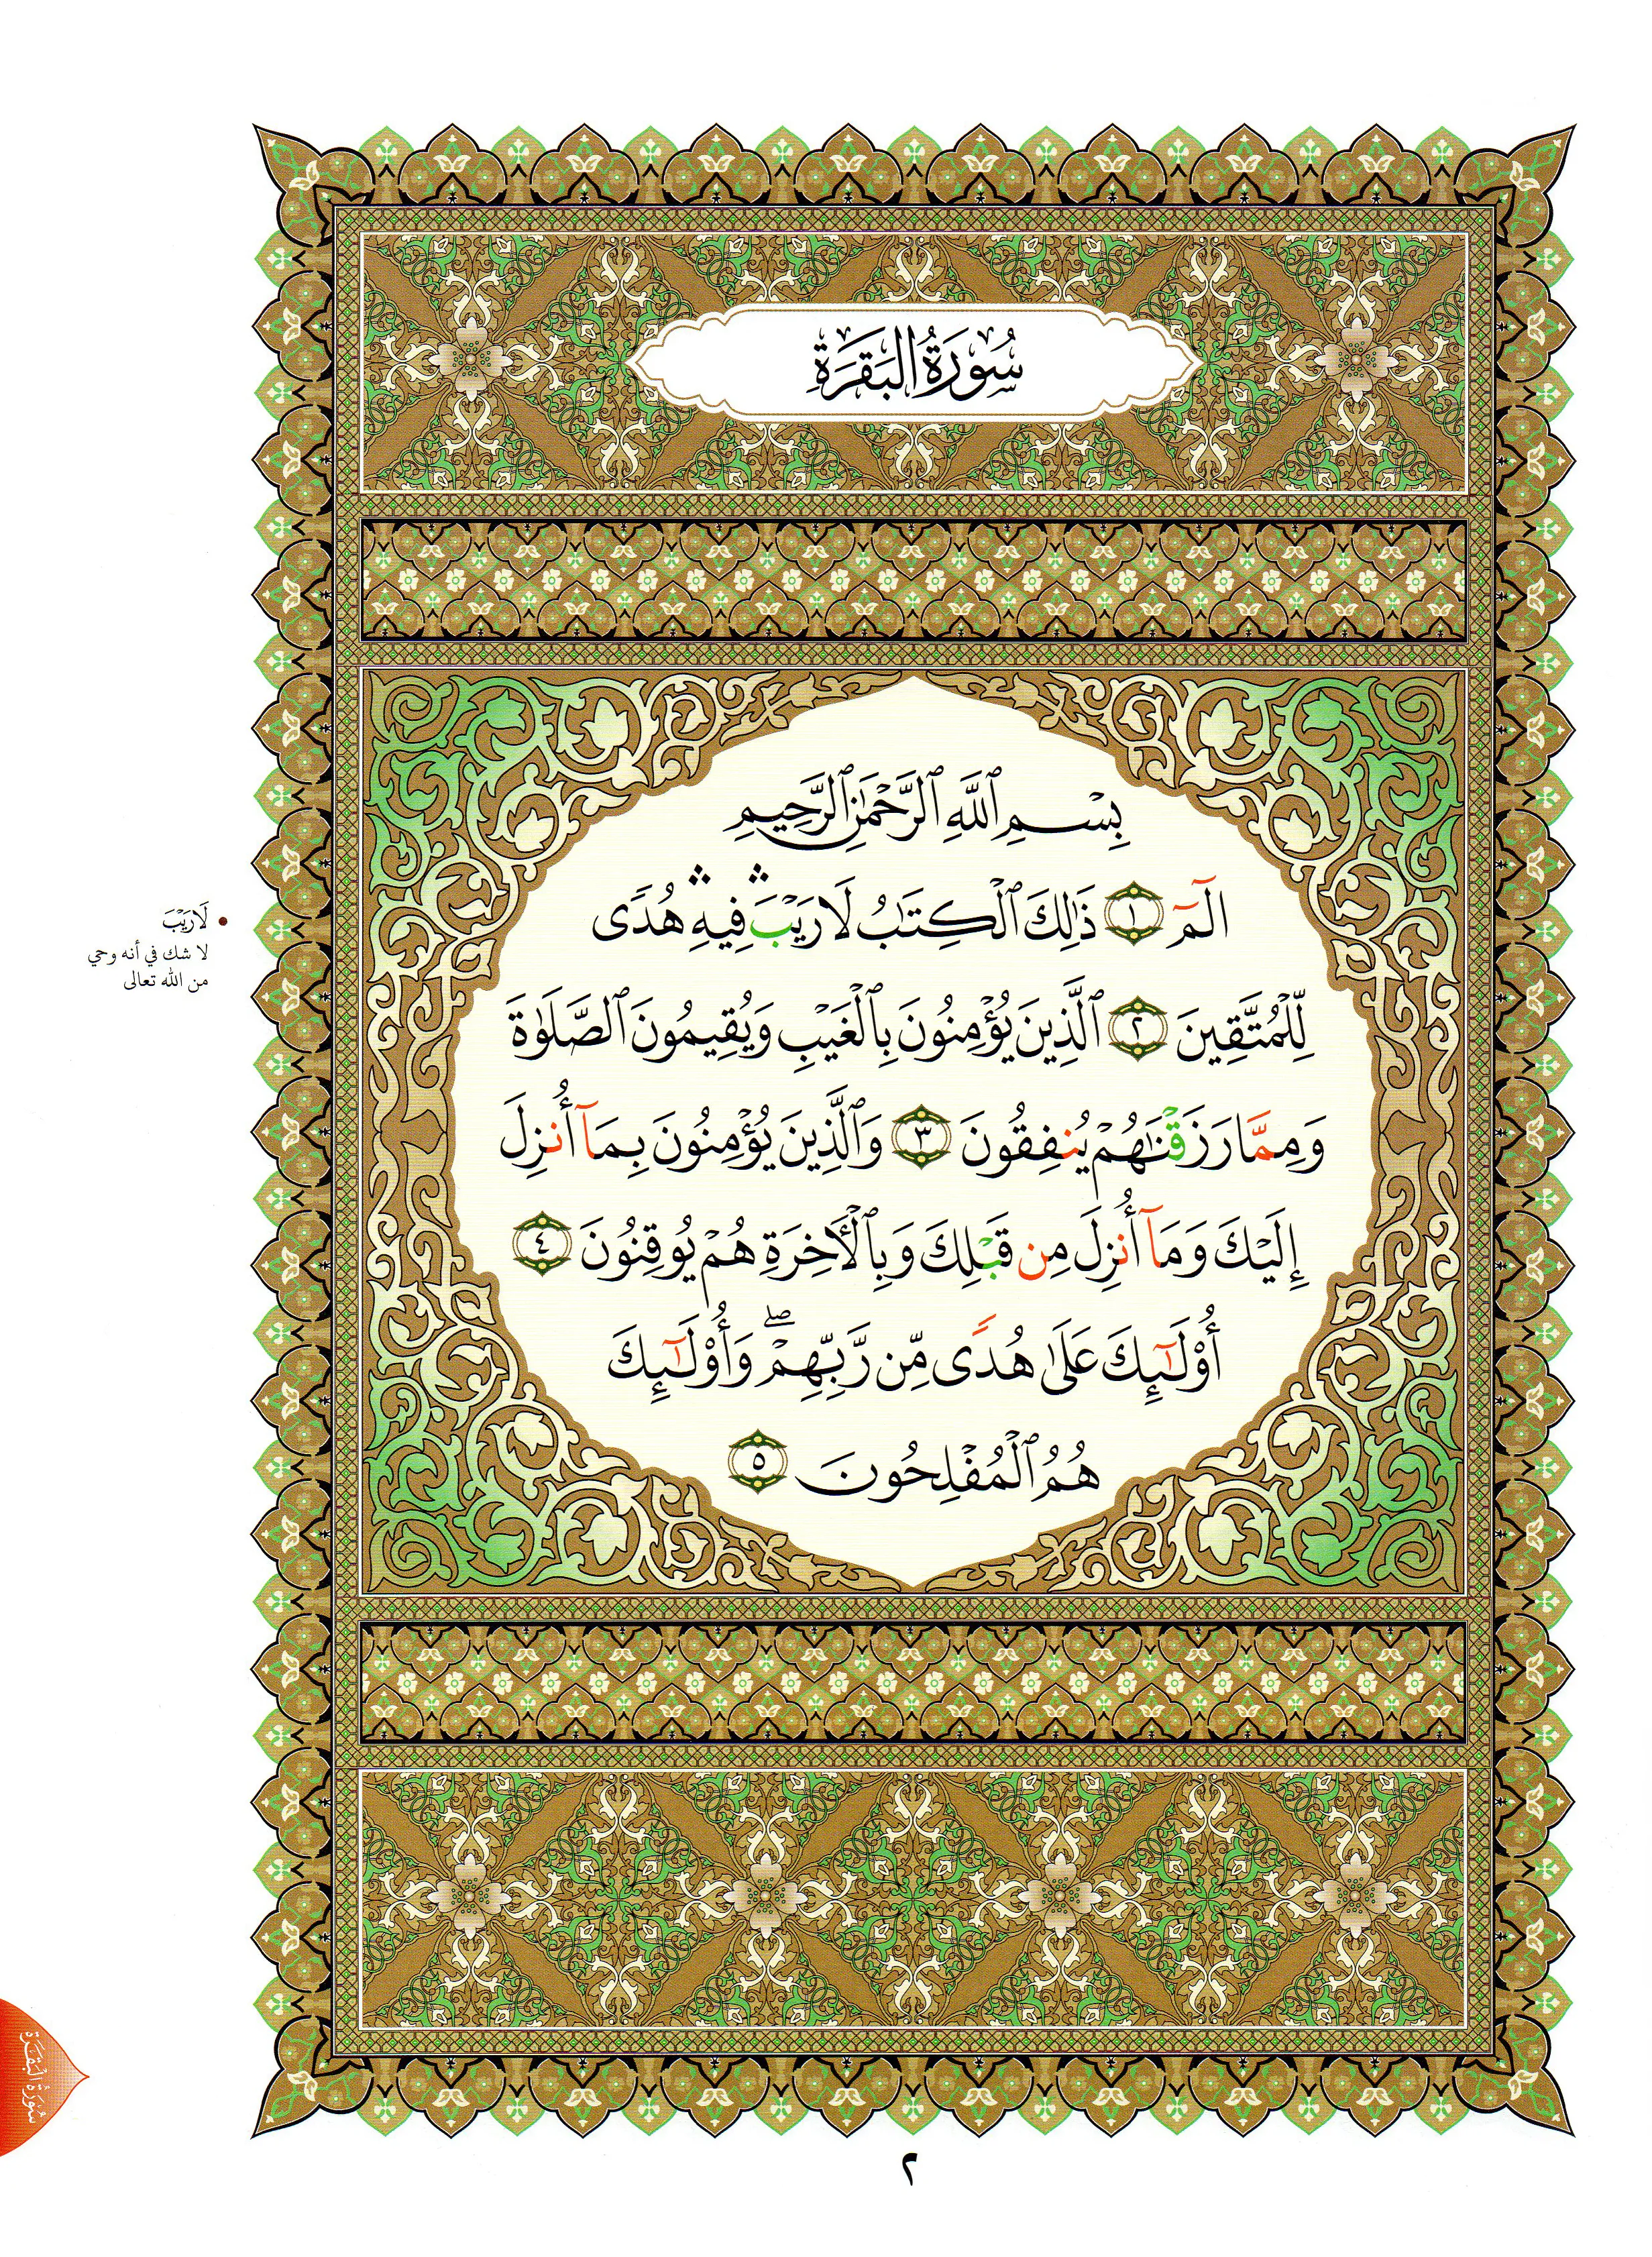 سُورَةُ الْبَقَرَةِ
بِسْمِ ٱللَّهِ ٱلرَّحْمَٰنِ ٱلرَّحِيمِ
الٓمٓ ١ ذَٰلِكَ ٱلْكِتَٰبُ لَا رَيْبَ ۛ فِيهِ ۛ هُدًى
لِّلْمُتَّقِينَ ٢ ٱلَّذِينَ يُؤْمِنُونَ بِٱلْغَيْبِ وَيُقِيمُونَ ٱلصَّلَوٰةَ
وَمِمَّا رَزَقْنَٰهُمْ يُنفِقُونَ ٣ وَٱلَّذِينَ يُؤْمِنُونَ بِمَآ أُنزِلَ
إِلَيْكَ وَمَآ أُنزِلَ مِن قَبْلِكَ وَبِٱلْأَخِرَةِ هُمْ يُوقِنُونَ ٤
أُو۟لَٰٓئِكَ عَلَىٰ هُدًى مِّن رَّبِّهِمْ ۖ وَأُو۟لَٰٓئِكَ
هُمُ ٱلْمُفْلِحُونَ ٥
• لَا رَيْبَ
لا شك في أنه وحي
من الله تعالى
سُورَةُ الْبَقَرَة
٢